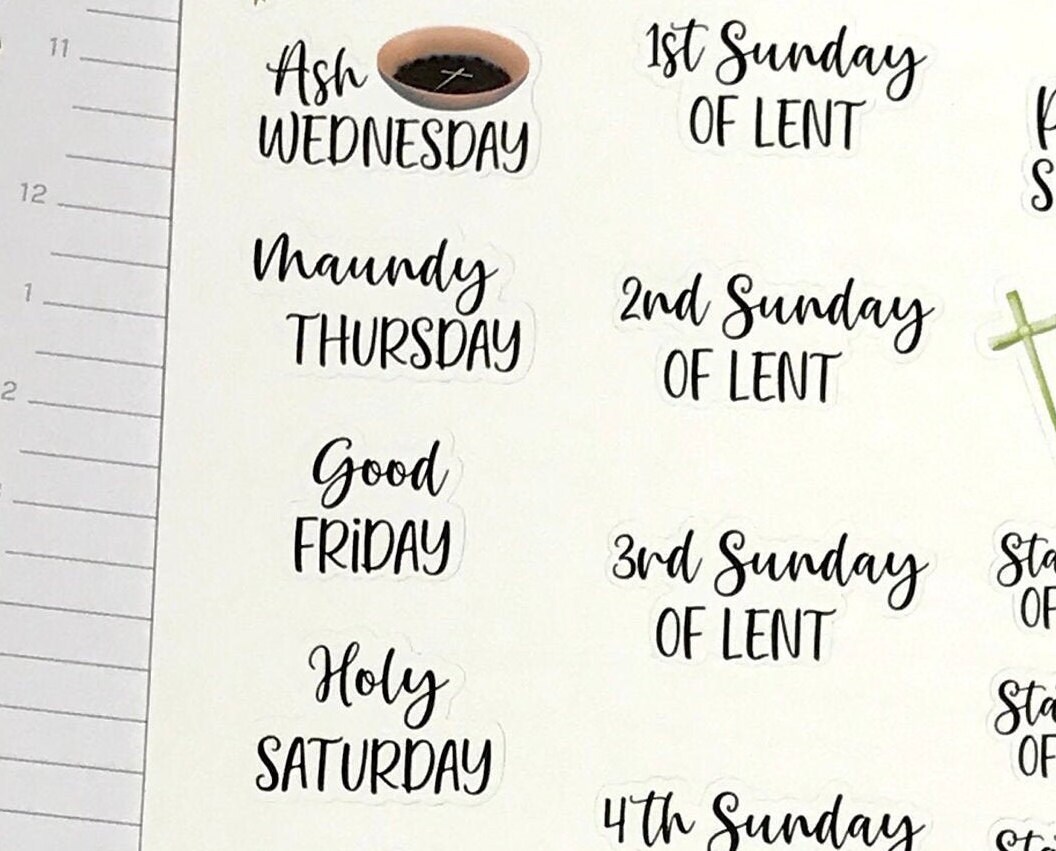 11
12
1
2
Ash
WEDNESDAY
Maundy
THURSDAY
Good
FRiDAY
Holy
SATURDAY
1st Sunday
OF LENT
2nd Sunday
OF LENT
3rd Sunday
OF LENT
4th Sunday
OF
OF